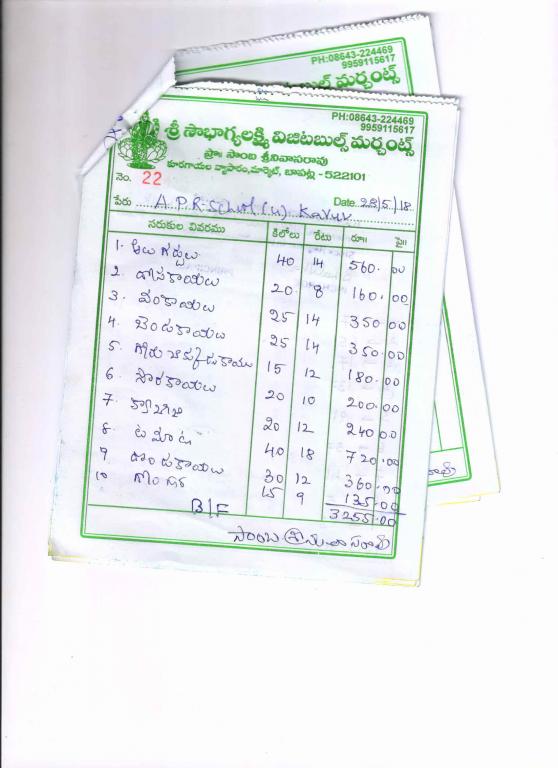 PH:08643-224469
9959115617
విజిటబుల్స్ మర్చంట్స్
PH:08643-224469
9959115617
శ్రీ సౌభాగ్యలక్ష్మి విజిటబుల్స్ మర్చంట్స్
ప్రొః సాంబ శ్రీనివాసరావు
కూరగాయల వ్యాపారం,మార్కెట్, బాపట్ల -522101
నెం. 22
పేరు A.P.R.School (U) Kavur Date 28/5/18
సరుకుల వివరము కిలోలు రేటు రూ॥ పై॥
1. ఆలు గడ్డలు 40 14 560.00
2 దోసకాయలు 20 8 160.00
3. వంకాయలు 25 14 350 00
4. బెండకాయలు 25 14 350.00
5. గోరుచిక్కుడుకాయలు 15 12 180.00
6. సొరకాయలు 20 10 200.00
7. క్యాబేజి 20 12 240 00
8. టమోటా 40 18 720.00
9 దొండకాయలు 30 12 360.00
10 గోంగూర 15 9 135.00
B/F 3255.00
సాంబ శ్రీనివాసరావు